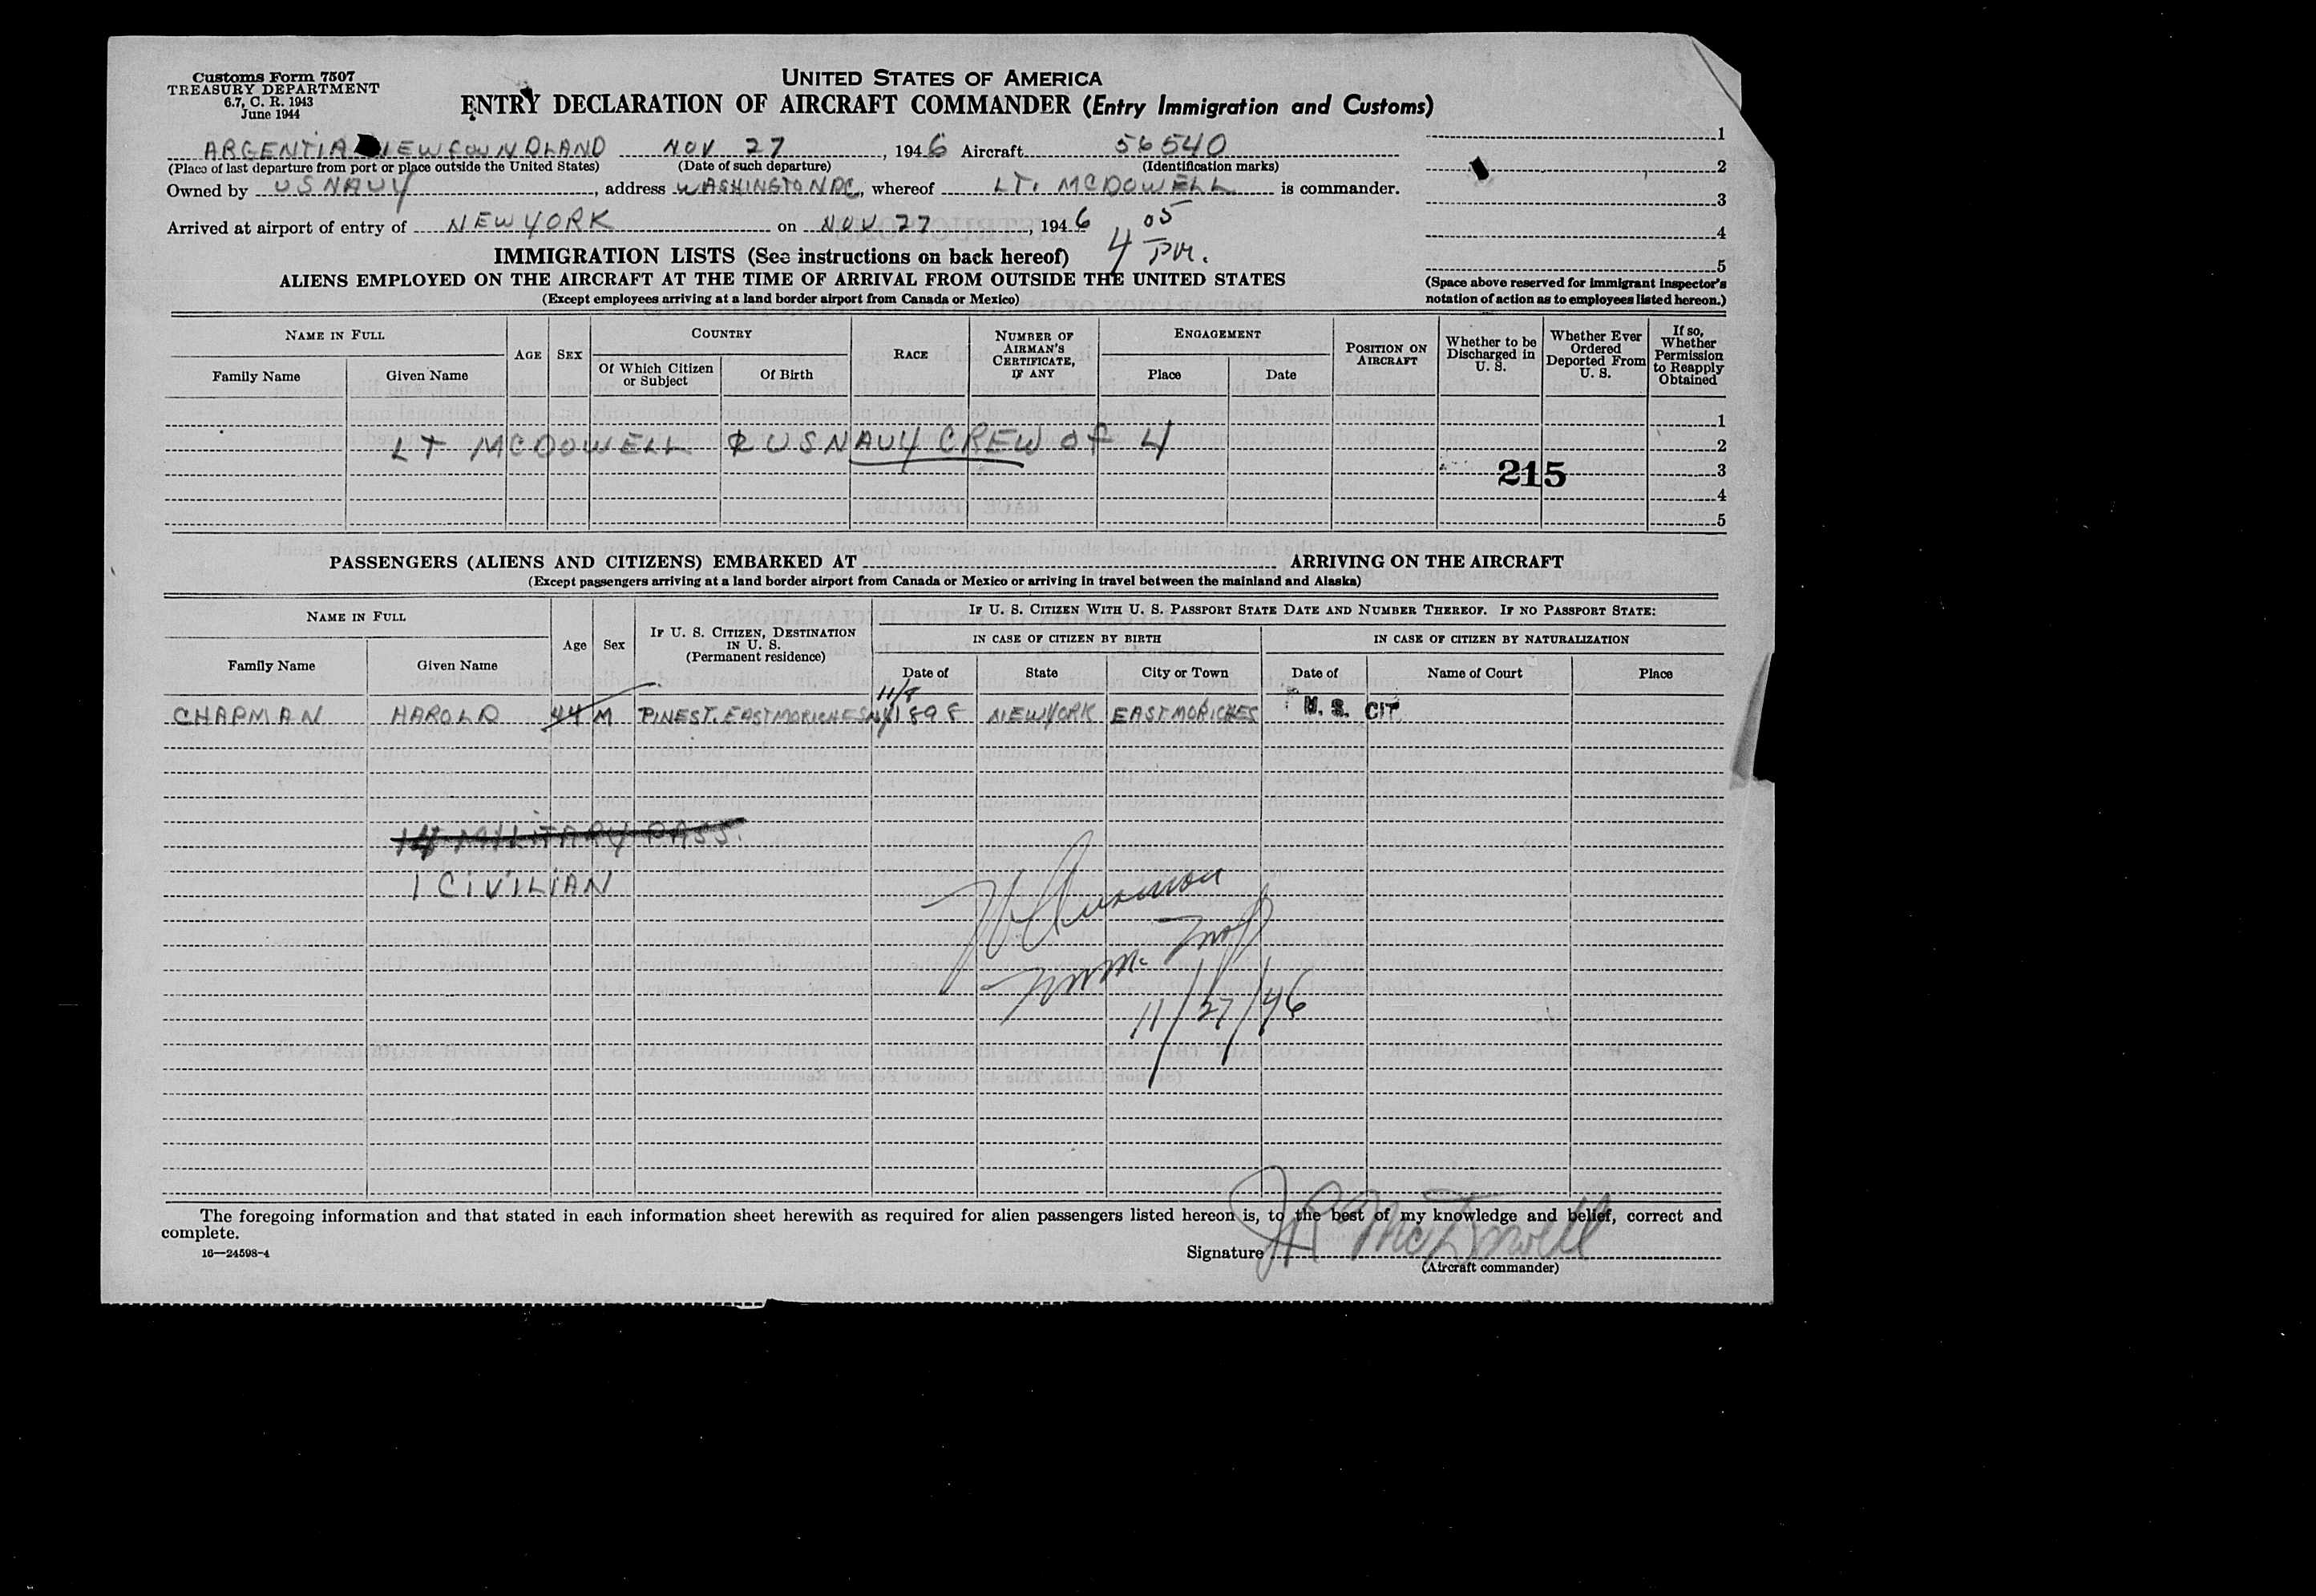 Customs Form 7507
TREASURY DEPARTMENT
6.7, C. R. 1943
June 1944
UNITED STATES OF AMERICA
ENTRY DECLARATION OF AIRCRAFT COMMANDER (Entry Immigration and Customs)
ARGENTIA NEWFOUNDLAND NOV 27, 1946 Aircraft 56540
(Place of last departure from port or place outside the United States) (Date of such departure) (Identification marks)
Owned by US NAVY, address WASHINGTON DC, whereof LT. MCDOWELL is commander.
Arrived at airport of entry of NEW YORK on NOV 27, 1946 4 05 PM.
1
2
3
4
5
(Space above reserved for immigrant inspector's
notation of action as to employees listed hereon.)
IMMIGRATION LISTS (See instructions on back hereof)
ALIENS EMPLOYED ON THE AIRCRAFT AT THE TIME OF ARRIVAL FROM OUTSIDE THE UNITED STATES
(Except employees arriving at a land border airport from Canada or Mexico)
NAME IN FULL
Family Name Given Name
AGE
SEX
COUNTRY
Of Which Citizen or Subject
Of Birth
RACE
NUMBER OF AIRMAN'S CERTIFICATE, IF ANY
ENGAGEMENT
Place Date
POSITION ON AIRCRAFT
Whether to be Discharged in U. S.
Whether Ever Ordered Deported From U. S.
If so, Whether Permission to Reapply Obtained
1
LT MCDOWELL & US NAVY CREW OF 4 2
215 3
4
5
PASSENGERS (ALIENS AND CITIZENS) EMBARKED AT ARRIVING ON THE AIRCRAFT
(Except passengers arriving at a land border airport from Canada or Mexico or arriving in travel between the mainland and Alaska)
NAME IN FULL
Family Name Given Name
Age
Sex
IF U. S. CITIZEN, DESTINATION IN U. S.
(Permanent residence)
IF U. S. CITIZEN WITH U. S. PASSPORT STATE DATE AND NUMBER THEREOF. IF NO PASSPORT STATE:
IN CASE OF CITIZEN BY BIRTH IN CASE OF CITIZEN BY NATURALIZATION
Date of State City or Town Date of Name of Court Place
11/8
CHAPMAN HAROLD 44 M PINE ST. EAST MORICHES NY 1898 NEW YORK EAST MORICHES U. S. CIT.
14 MILITARY PASS.
1 CIVILIAN
11/27/46
The foregoing information and that stated in each information sheet herewith as required for alien passengers listed hereon is, to the best of my knowledge and belief, correct and
complete.
16—24598-4
Signature McDowell
(Aircraft commander)